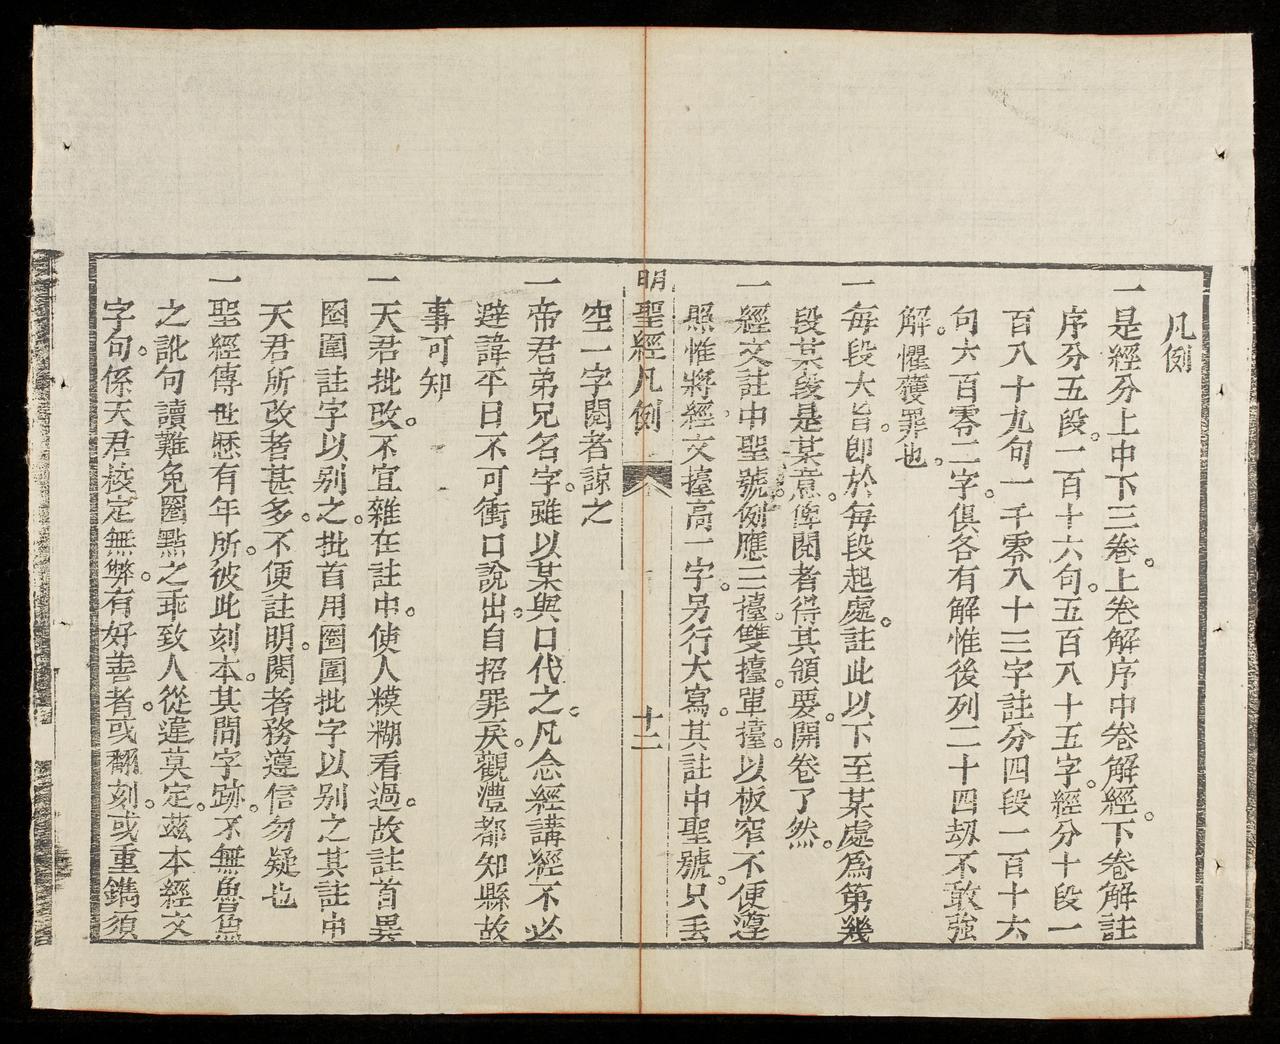 凡例
一是經分上中下三卷。上卷解序中卷解經。下卷解註
序分五段。一百十六句。五百八十五字。經分十段一
百八十九句一千零八十三字註分四段一百十六
句六百零二字。俱各有解惟後列二十四刼不敢強
解。懼獲罪也。
一每段大旨。卽於每段起處。註此以下至某處。爲第幾
段某段是某意。俾閱者得其領要。開卷了然。
一經文註中聖號。例應三擡。雙擡。單擡。以板窄不便遵
照惟將經文擡高一字。另行大寫。其註中聖號。只丢
明聖經凡例
十二
空一字閱者諒之
一帝君弟兄名字。雖以某與口代之。凡念經講經不必
避諱平日不可衝口說出。自招罪戾。觀澧都知縣故
事可知
一天君批改。不宜雜在註中。使人糢糊看過。故註首異
圈圍註字以别之。批首用圈圍批字以别之其註中
天君所改者甚多。不便註明。閱者務遵信勿疑也
一聖經傳世歷有年所。彼此刻本。其間字跡。不無魯魚
之訛句讀難免圈點之乖致人從違莫定。茲本經文
字句。係天君校定無弊。有好善者。或翻刻。或重鐫須